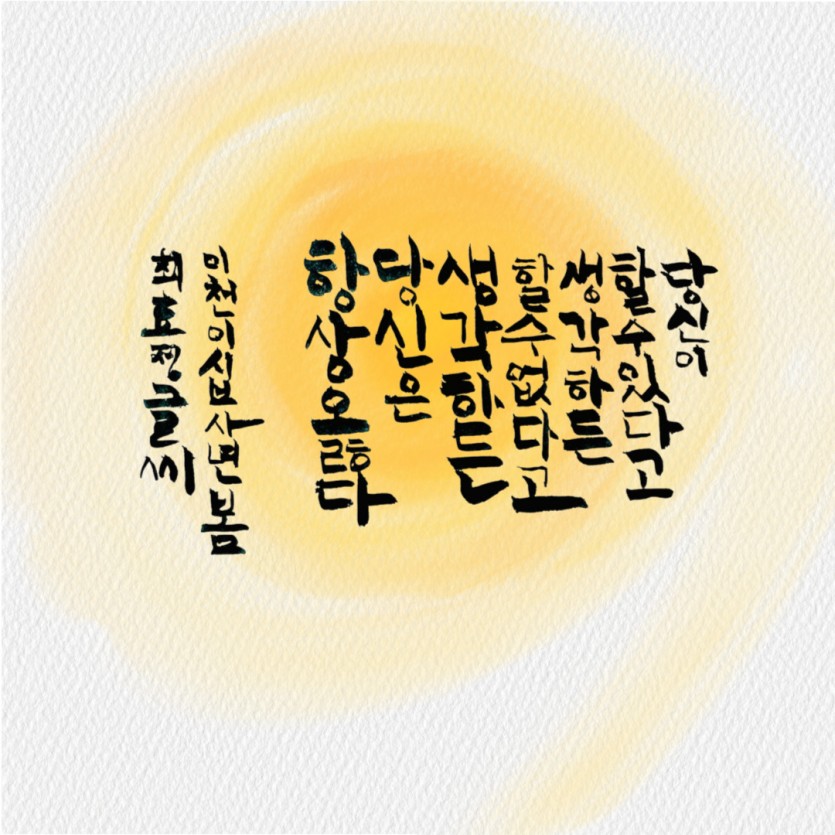 당신이
할수있다고
생각하든
할수없다고
생각하든
당신은
항상옳다
이천이십사년봄
최효정글씨